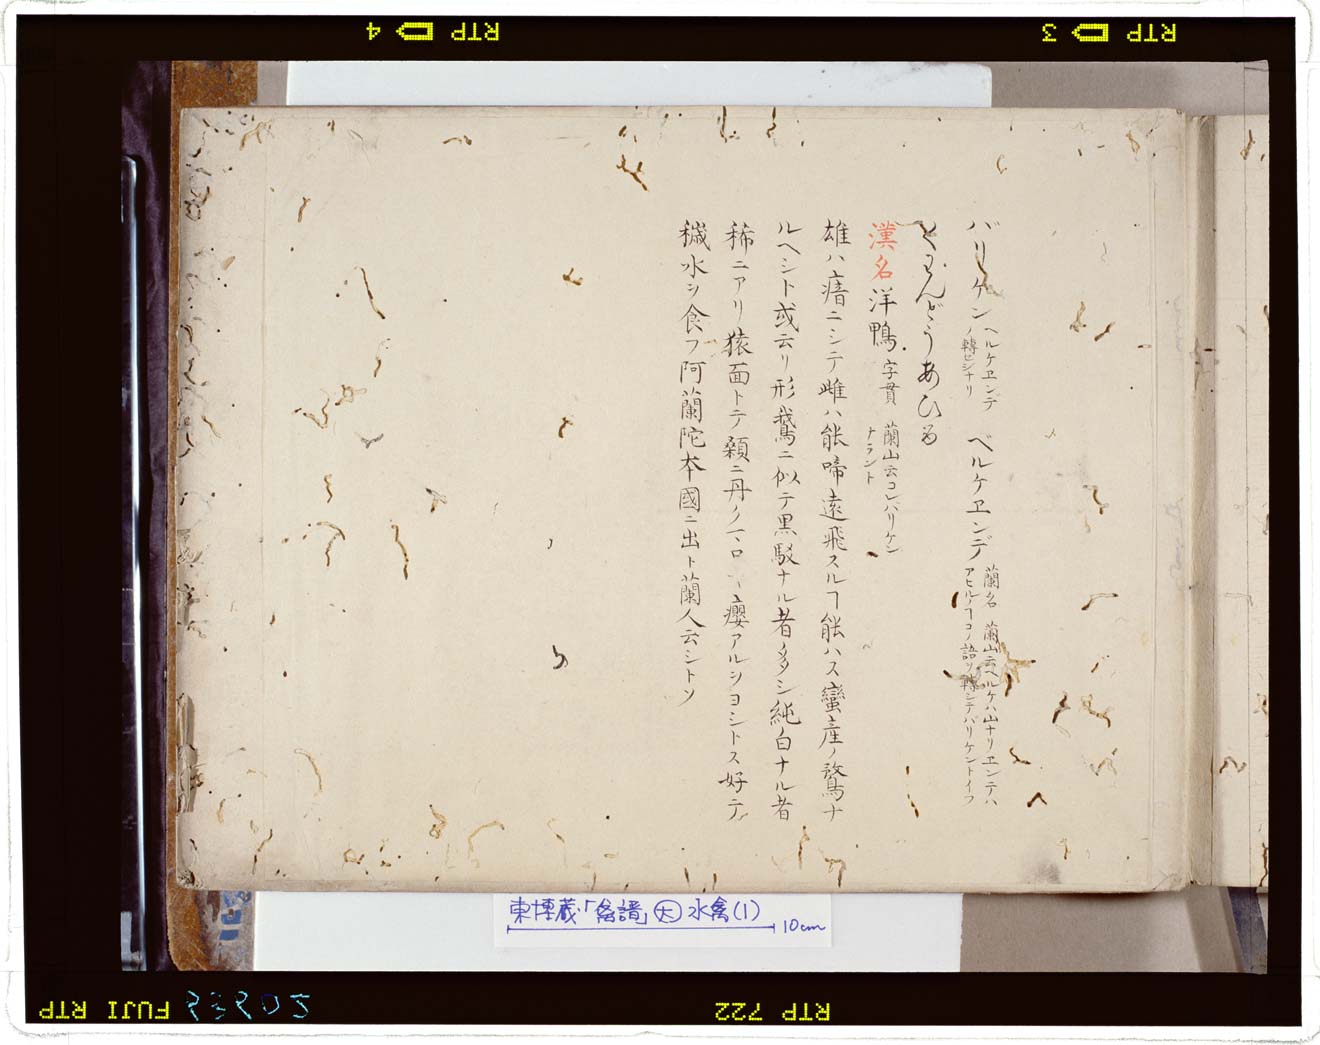 バリケン ヘルケヱンデ
ノ轉セシナリ
ベルケヱンデ 蘭名 蘭山云ヘルケハ山ナリヱンテハ
アヒルノヿコノ語ヲ轉シテバリケントイフ
どうあひる
漢名 洋鴨 字貫 蘭山云コレバリケン
ナラント
雄ハ瘖ニシテ雌ハ能啼遠飛スルヿ能ハス蠻産ノ鶩ナ
ルヘシト或云リ形鵞ニ似テ黒駁ナル者多シ純白ナル者
稀ニアリ猿面トテ顙ニ丹ノ癭アルヲヨシトス好テ
穢水ヲ食フ阿蘭陀本國ニ出ト蘭人云シトソ
東博蔵「禽譜」大 水禽(1)
10cm
RTP 4
RTP 3
FUJI RTP
RTP 722